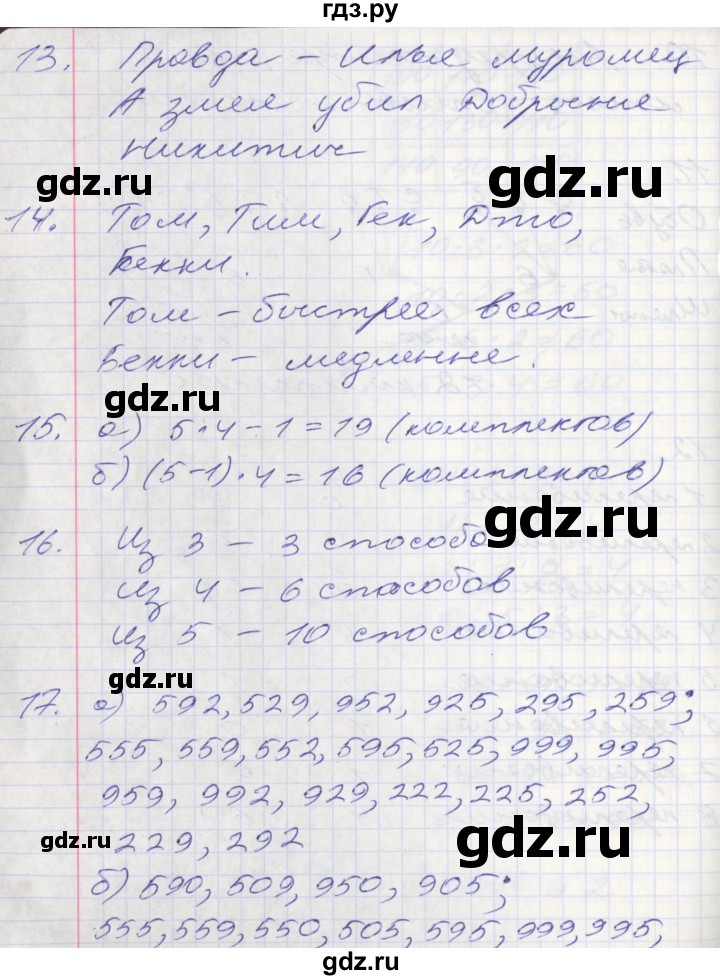 гдз.ру
13. Правда – Илья Муромец
А змея убил Добрыня
Никитич
gdz.ru gdz.ru
14. Том, Тим, Гек, Джо,
Бекки.
Том – быстрее всех
Бекки – медленне.
gdz.ru
15. а) 5·4 – 1 = 19 (комплектов)
б) (5-1)·4 = 16 (комплектов)
gdz.ru
16. Из 3 – 3 способа
Из 4 – 6 способов
Из 5 – 10 способов
gdz.ru
17. а) 592, 529, 952, 925, 295, 259;
555, 559, 552, 595, 525, 999, 995,
959, 992, 929, 222, 225, 252,
229, 292
gdz.ru gdz.ru
б) 590, 509, 950, 905;
555, 559, 550, 505, 595, 999, 995,
gdz.ru